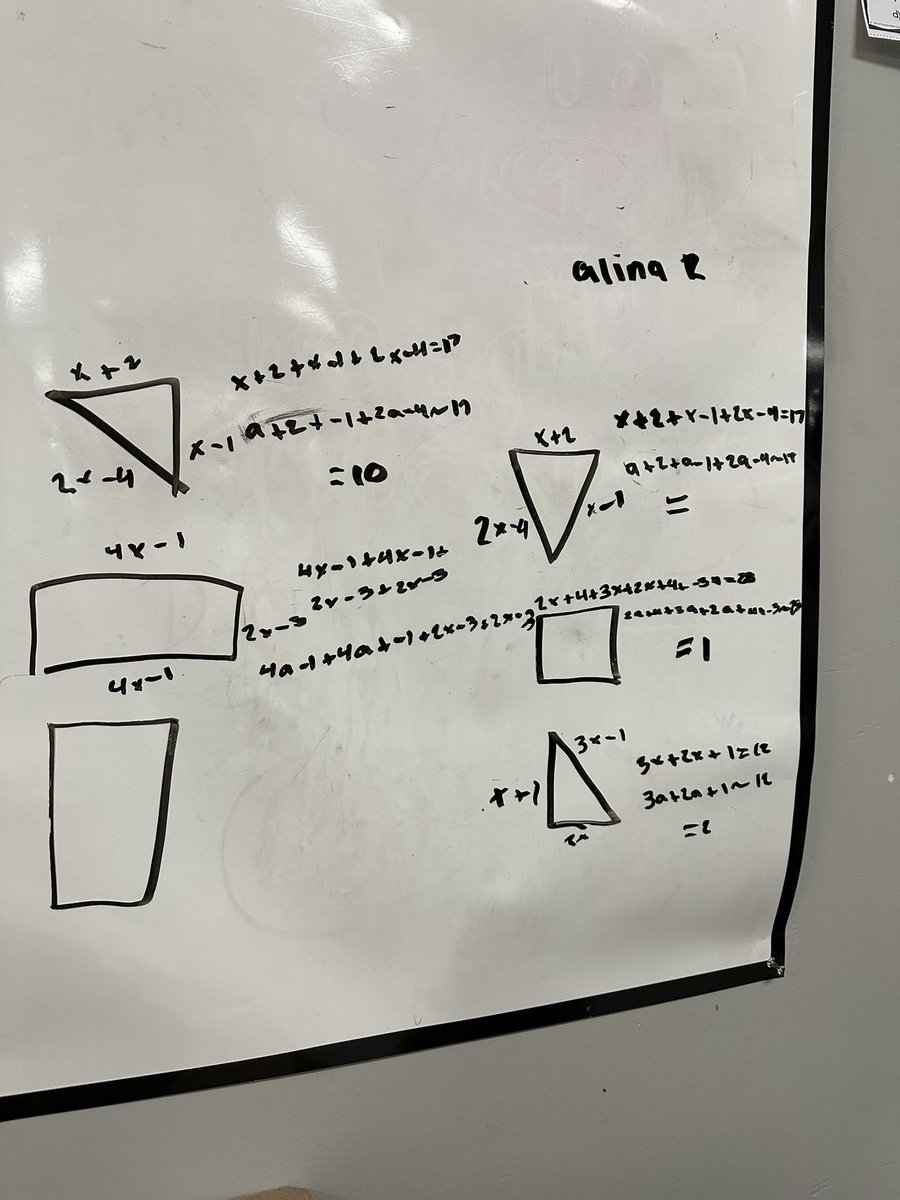 alina R
x + 2
x+2+x-1+2x-4=17
x-1
a+2+-1+2a-4~17
2x-4
=10
x+2+x-1+2x-4=17
x+2
a+2+a-1+2a-4~17
2x-4
x-1
=
4x-1
4x-1+4x-1+
2x-3+2x-3
2x-3
4a-1+4a+-1+2x-3+2x-3
4x-1
=1
3x-1
x+1
3x+2x+1=12
3a+2a+1~12
2x
=2